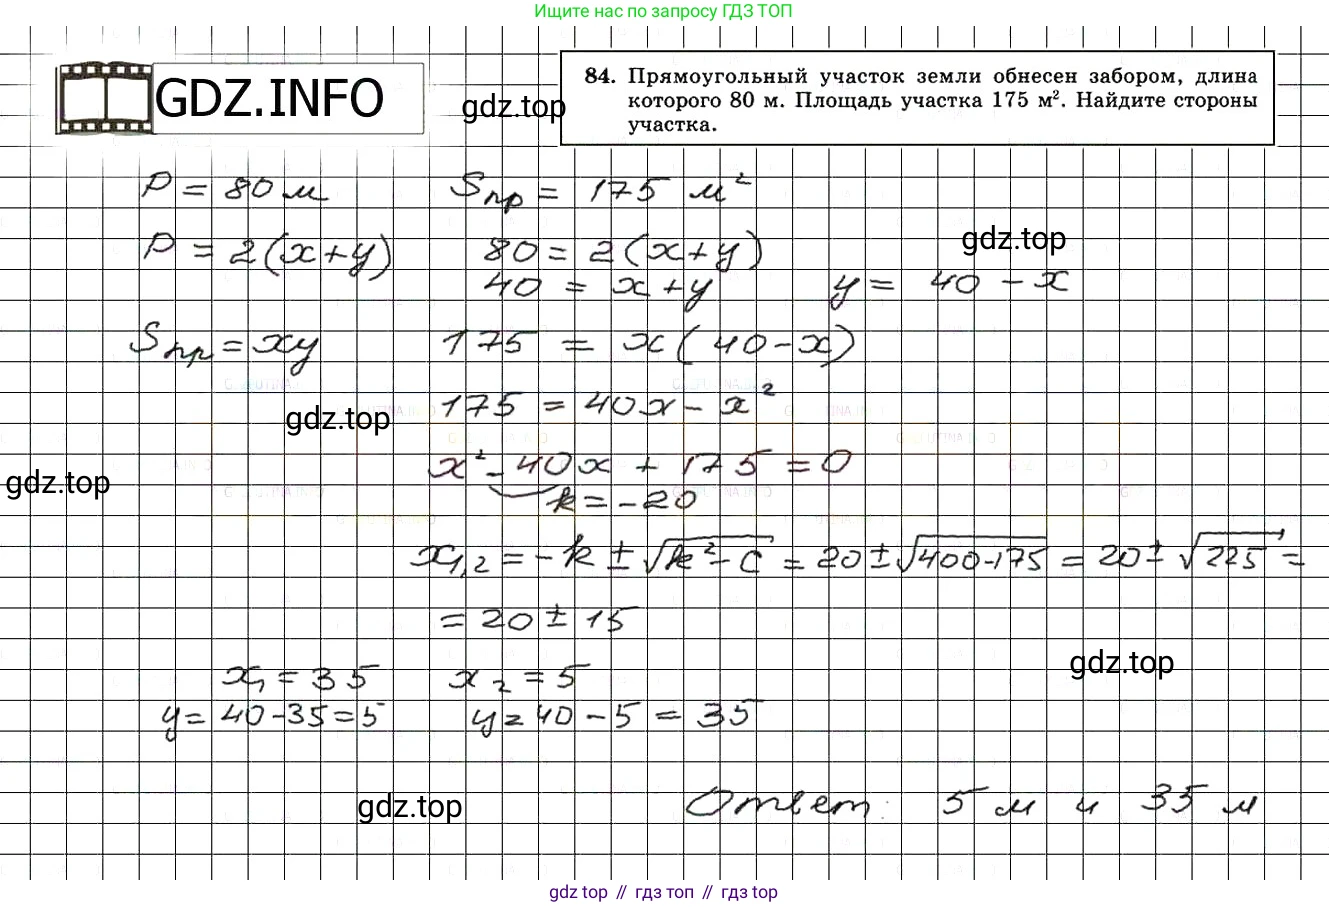 Ищите нас по запросу ГДЗ ТОП
GDZ.INFO
gdz.top
84. Прямоугольный участок земли обнесен забором, длина
которого 80 м. Площадь участка 175 м². Найдите стороны
участка.
P = 80 м Sпр = 175 м²
gdz.top
P = 2(x+y) 80 = 2(x+y)
40 = x+y y = 40 - x
Sпр = xy 175 = x(40-x)
175 = 40x - x²
gdz.top
x² - 40x + 175 = 0
gdz.top
k = -20
x1,2 = -k ± √k²-c = 20 ± √400-175 = 20 ± √225 =
= 20 ± 15
gdz.top
x1 = 35 x2 = 5
y = 40-35 = 5 y = 40 - 5 = 35
gdz.top
Ответ: 5 м и 35 м
gdz top // гдз топ // гдз top